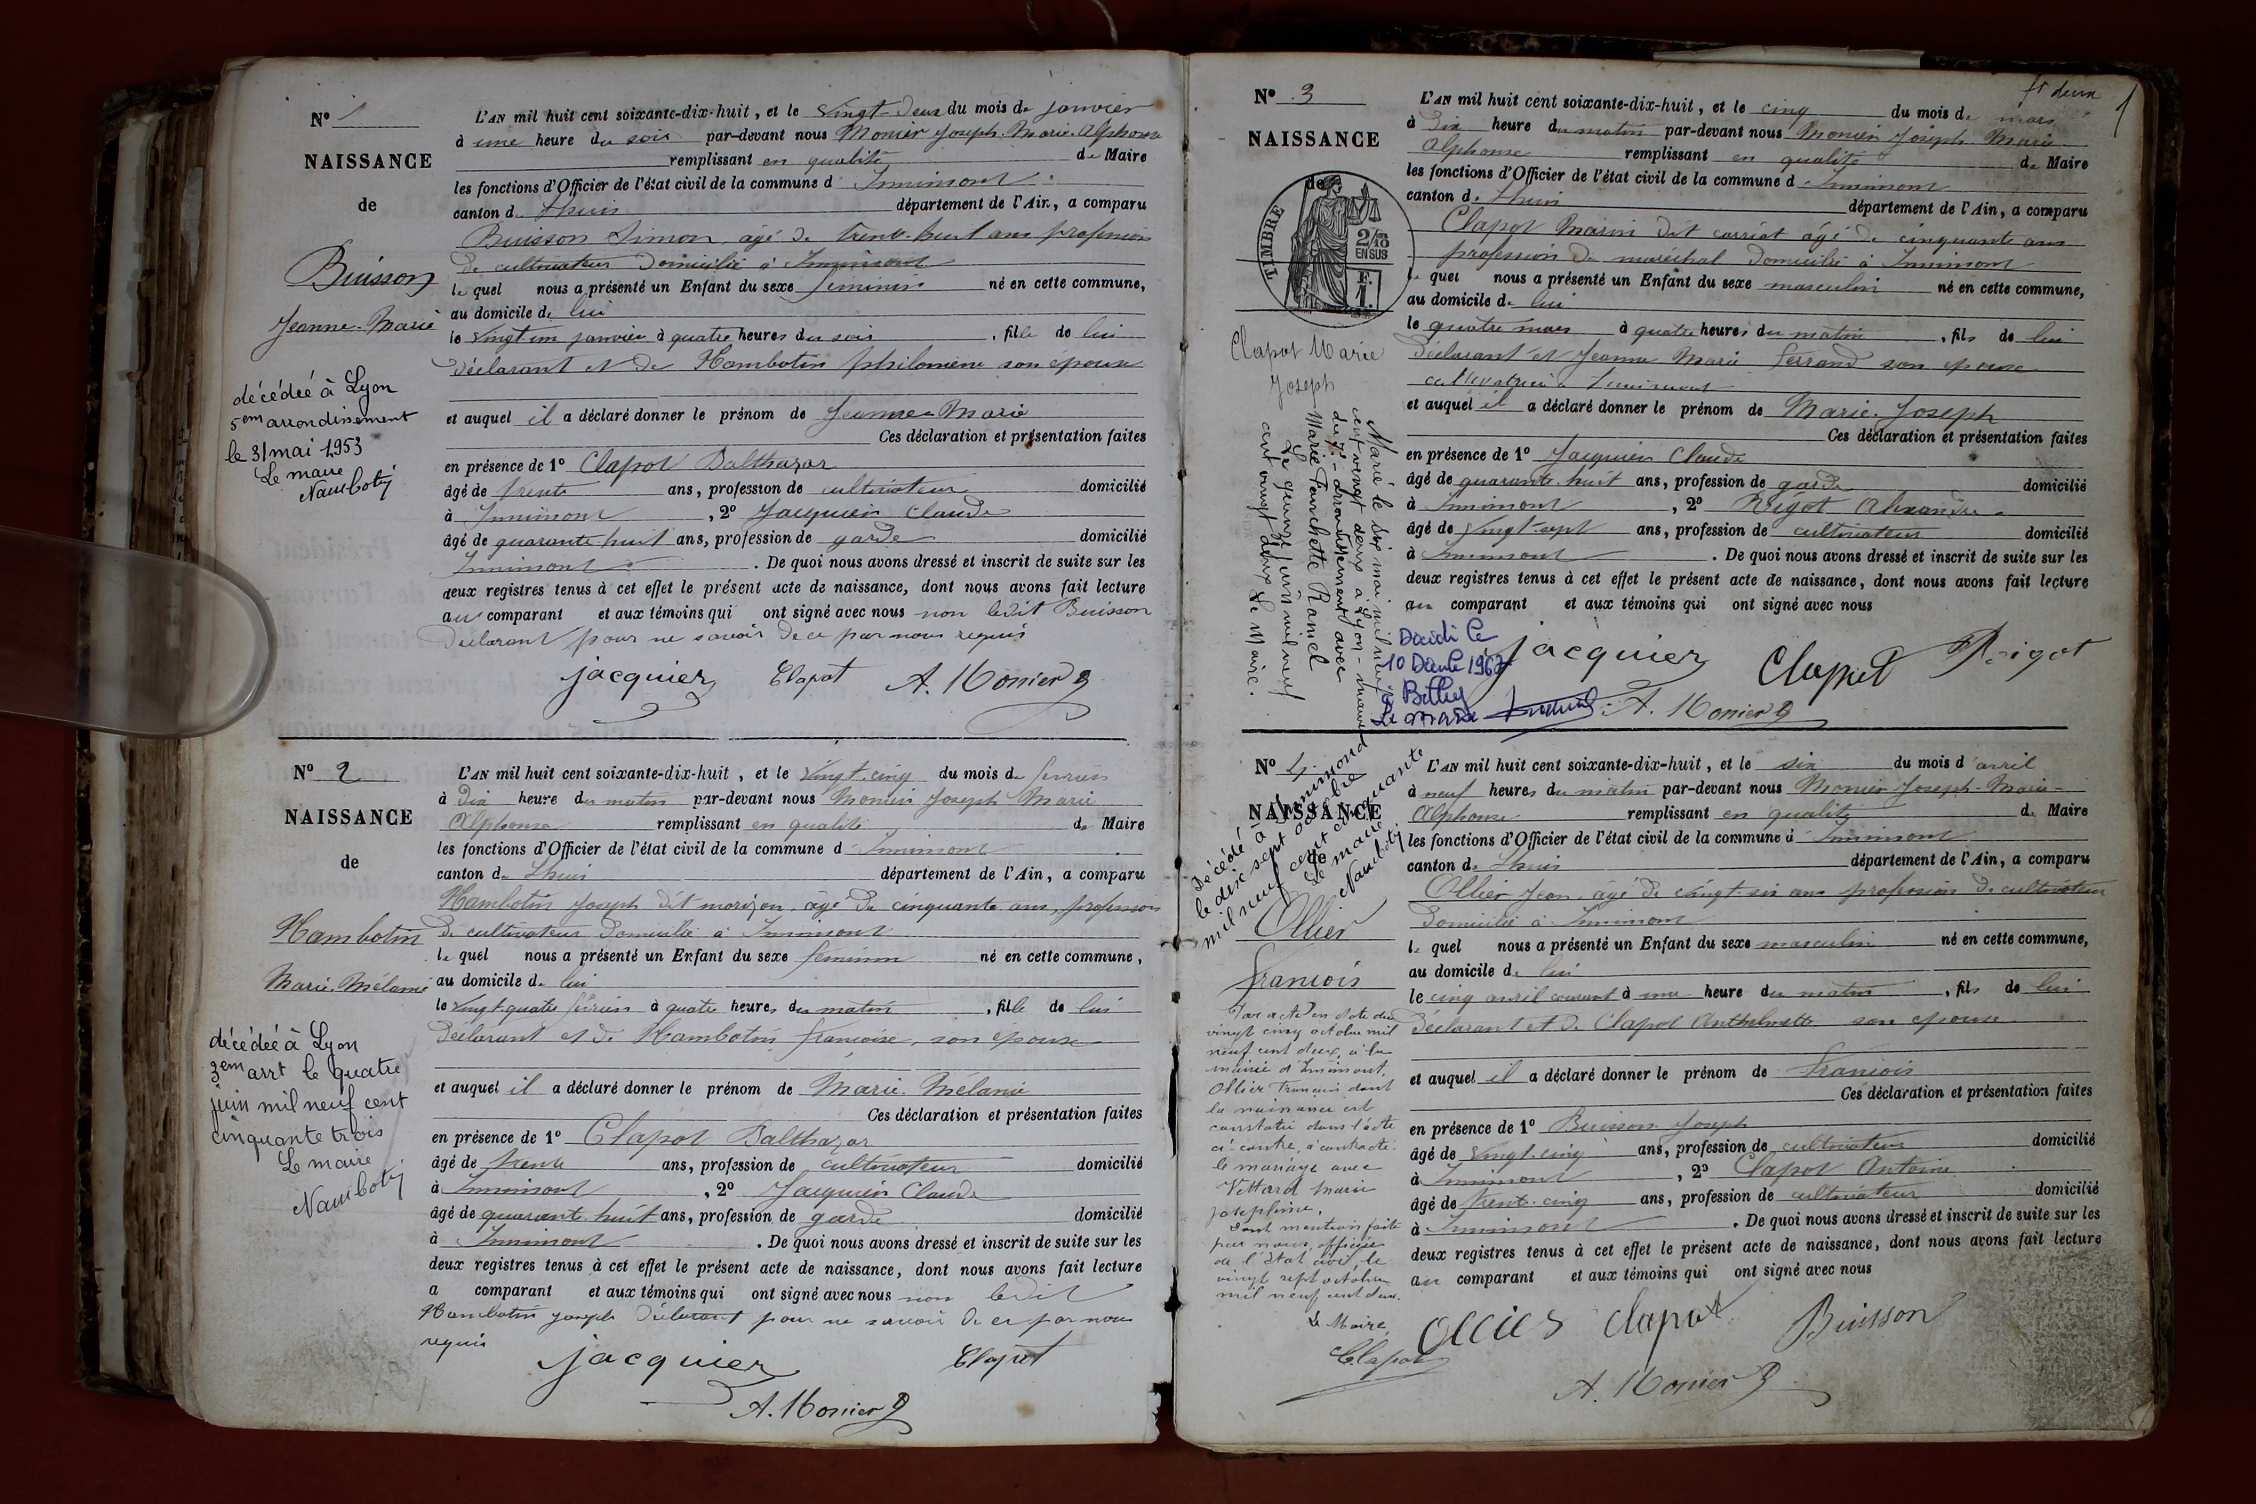 Nº 1
NAISSANCE
de
Buisson
Jeanne-Marie
décédée à Lyon
5em arrondissement
le 31 mai 1953
Le maire
L'AN mil huit cent soixante-dix-huit, et le vingt-deux du mois de janvier
à une heure du soir par-devant nous Monier Joseph-Marie-Alphonse
remplissant en qualité de Maire
les fonctions d'Officier de l'état civil de la commune d Innimont
canton d. Lhuis département de l'Ain, a comparu
Buisson Simon, âgé de trente-huit ans profession
de cultivateur domicilié à Innimont
lequel nous a présenté un Enfant du sexe féminin né en cette commune,
au domicile de lui
le vingt un janvier à quatre heures du soir, fille de lui
déclarant et de Hambotin philomène son épouse
et auquel il a déclaré donner le prénom de Jeanne-Marie
Ces déclaration et présentation faites
en présence de 1º Clapot Balthazar
âgé de trente ans, profession de cultivateur domicilié
à Innimont, 2º Jacquier Claude
âgé de quarante-huit ans, profession de garde domicilié
Innimont. De quoi nous avons dressé et inscrit de suite sur les
deux registres tenus à cet effet le présent acte de naissance, dont nous avons fait lecture
au comparant et aux témoins qui ont signé avec nous non ledit Buisson
déclarant pour ne savoir de ce par nous requis
jacquier Clapot A. Monier
Nº 2
NAISSANCE
de
Hambotin
Marie-Mélanie
décédée à Lyon
3em arrt le quatre
juin mil neuf cent
cinquante trois
Le maire
L'AN mil huit cent soixante-dix-huit, et le vingt-cinq du mois de février
à dix heure du matin par-devant nous Monier Joseph Marie
Alphonse remplissant en qualité de Maire
les fonctions d'Officier de l'état civil de la commune d Innimont
canton d. Lhuis département de l'Ain, a comparu
Hambotin Joseph dit morizon, âgé de cinquante ans, profession
de cultivateur domicilié à Innimont
lequel nous a présenté un Enfant du sexe féminin né en cette commune,
au domicile de lui
le vingt-quatre février à quatre heures du matin, fille de lui
déclarant et de Hambotin françoise, son épouse
et auquel il a déclaré donner le prénom de Marie-Mélanie
Ces déclaration et présentation faites
en présence de 1º Clapot Balthazar
âgé de trente ans, profession de cultivateur domicilié
à Innimont, 2º Jacquier Claude
âgé de quarante-huit ans, profession de garde domicilié
à Innimont. De quoi nous avons dressé et inscrit de suite sur les
deux registres tenus à cet effet le présent acte de naissance, dont nous avons fait lecture
a comparant et aux témoins qui ont signé avec nous non ledit
Hambotin joseph déclarant pour ne savoir de ce par nous
requis
jacquier Clapot
A. Monier
ft deux
1
Nº 3
NAISSANCE
de
TIMBRE
2/10
EN SUS
F.
1.
Clapot Marie
Joseph
Marié le six mai mil neuf
cent vingt deux à Lyon - mairie
du 7e - arrondissement avec
Marie Fanchette Ramel
Le quinze juin mil neuf
cent vingt deux Le Maire.
Décédé le
10 1967
à Belley
Le Maire
L'AN mil huit cent soixante-dix-huit, et le cinq du mois de mars
à dix heure du matin par-devant nous Monier Joseph Marie
Alphonse remplissant en qualité de Maire
les fonctions d'Officier de l'état civil de la commune d Innimont
canton d. Lhuis département de l'Ain, a comparu
Clapot Marin dit carriot âgé de cinquante ans
profession de maréchal domicilié à Innimont
le quel nous a présenté un Enfant du sexe masculin né en cette commune,
au domicile de lui
le quatre mars à quatre heures du matin, fils de lui
déclarant et Jeanne Marie ferrand son épouse
cultivatrice à Innimont
et auquel il a déclaré donner le prénom de Marie-Joseph
Ces déclaration et présentation faites
en présence de 1º Jacquier Claude
âgé de quarante-huit ans, profession de garde domicilié
à Innimont, 2º Rigot Alexandre
âgé de vingt-sept ans, profession de cultivateur domicilié
à Innimont. De quoi nous avons dressé et inscrit de suite sur les
deux registres tenus à cet effet le présent acte de naissance, dont nous avons fait lecture
au comparant et aux témoins qui ont signé avec nous
jacquier Clapot Rigot
A. Monier
Nº 4
NAISSANCE
Décédé à Innimond
le dix sept octobre
mil neuf cent cinquante
Le maire
Ollier
françois
Par acte en date du
vingt cinq octobre mil
neuf cent deux, à la
mairie d'Innimont,
Ollier François dont
la naissance est
constatée dans l'acte
ci-contre, a contracté
le mariage avec
Vettard Marie
Joséphine.
Dont mention faite
par nous, officier
de l'état civil, le
vingt sept octobre
mil neuf cent deux.
Le Maire,
Clapot
L'AN mil huit cent soixante-dix-huit, et le six du mois d'avril
à neuf heures du matin par-devant nous Monier Joseph-Marie-
Alphonse remplissant en qualité de Maire
les fonctions d'Officier de l'état civil de la commune d Innimont
canton d. Lhuis département de l'Ain, a comparu
Ollier Jean, âgé de vingt-six ans profession de cultivateur
domicilié à Innimont
le quel nous a présenté un Enfant du sexe masculin né en cette commune,
au domicile de lui
le cinq avril courant à une heure du matin, fils de lui
déclarant et de Clapot Anthelmette son épouse
et auquel il a déclaré donner le prénom de françois
Ces déclaration et présentation faites
en présence de 1º Buisson Joseph
âgé de vingt-cinq ans, profession de cultivateur domicilié
à Innimont, 2º Clapot Antoine
âgé de trente-cinq ans, profession de cultivateur domicilié
à Innimont. De quoi nous avons dressé et inscrit de suite sur les
deux registres tenus à cet effet le présent acte de naissance, dont nous avons fait lecture
au comparant et aux témoins qui ont signé avec nous
Ollier Clapot Buisson
A. Monier